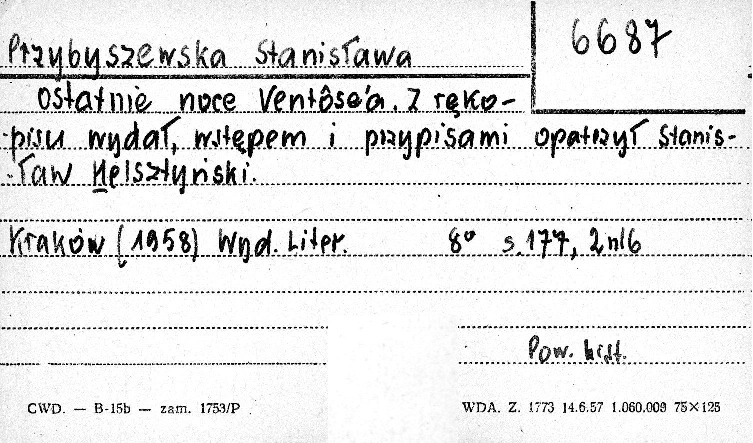 Przybyszewska Stanisława
6687
Ostatnie noce Ventôse'a. Z ręko-
pisu wydał, wstępem i przypisami opatrzył Stanis-
ław Helsztyński.
Kraków (1958) Wyd. Liter. 8° s. 177, 2 nlb
Pow. hist.
CWD. — B-15b — zam. 1753/P
WDA. Z. 1773 14.6.57 1.060.009 75×125